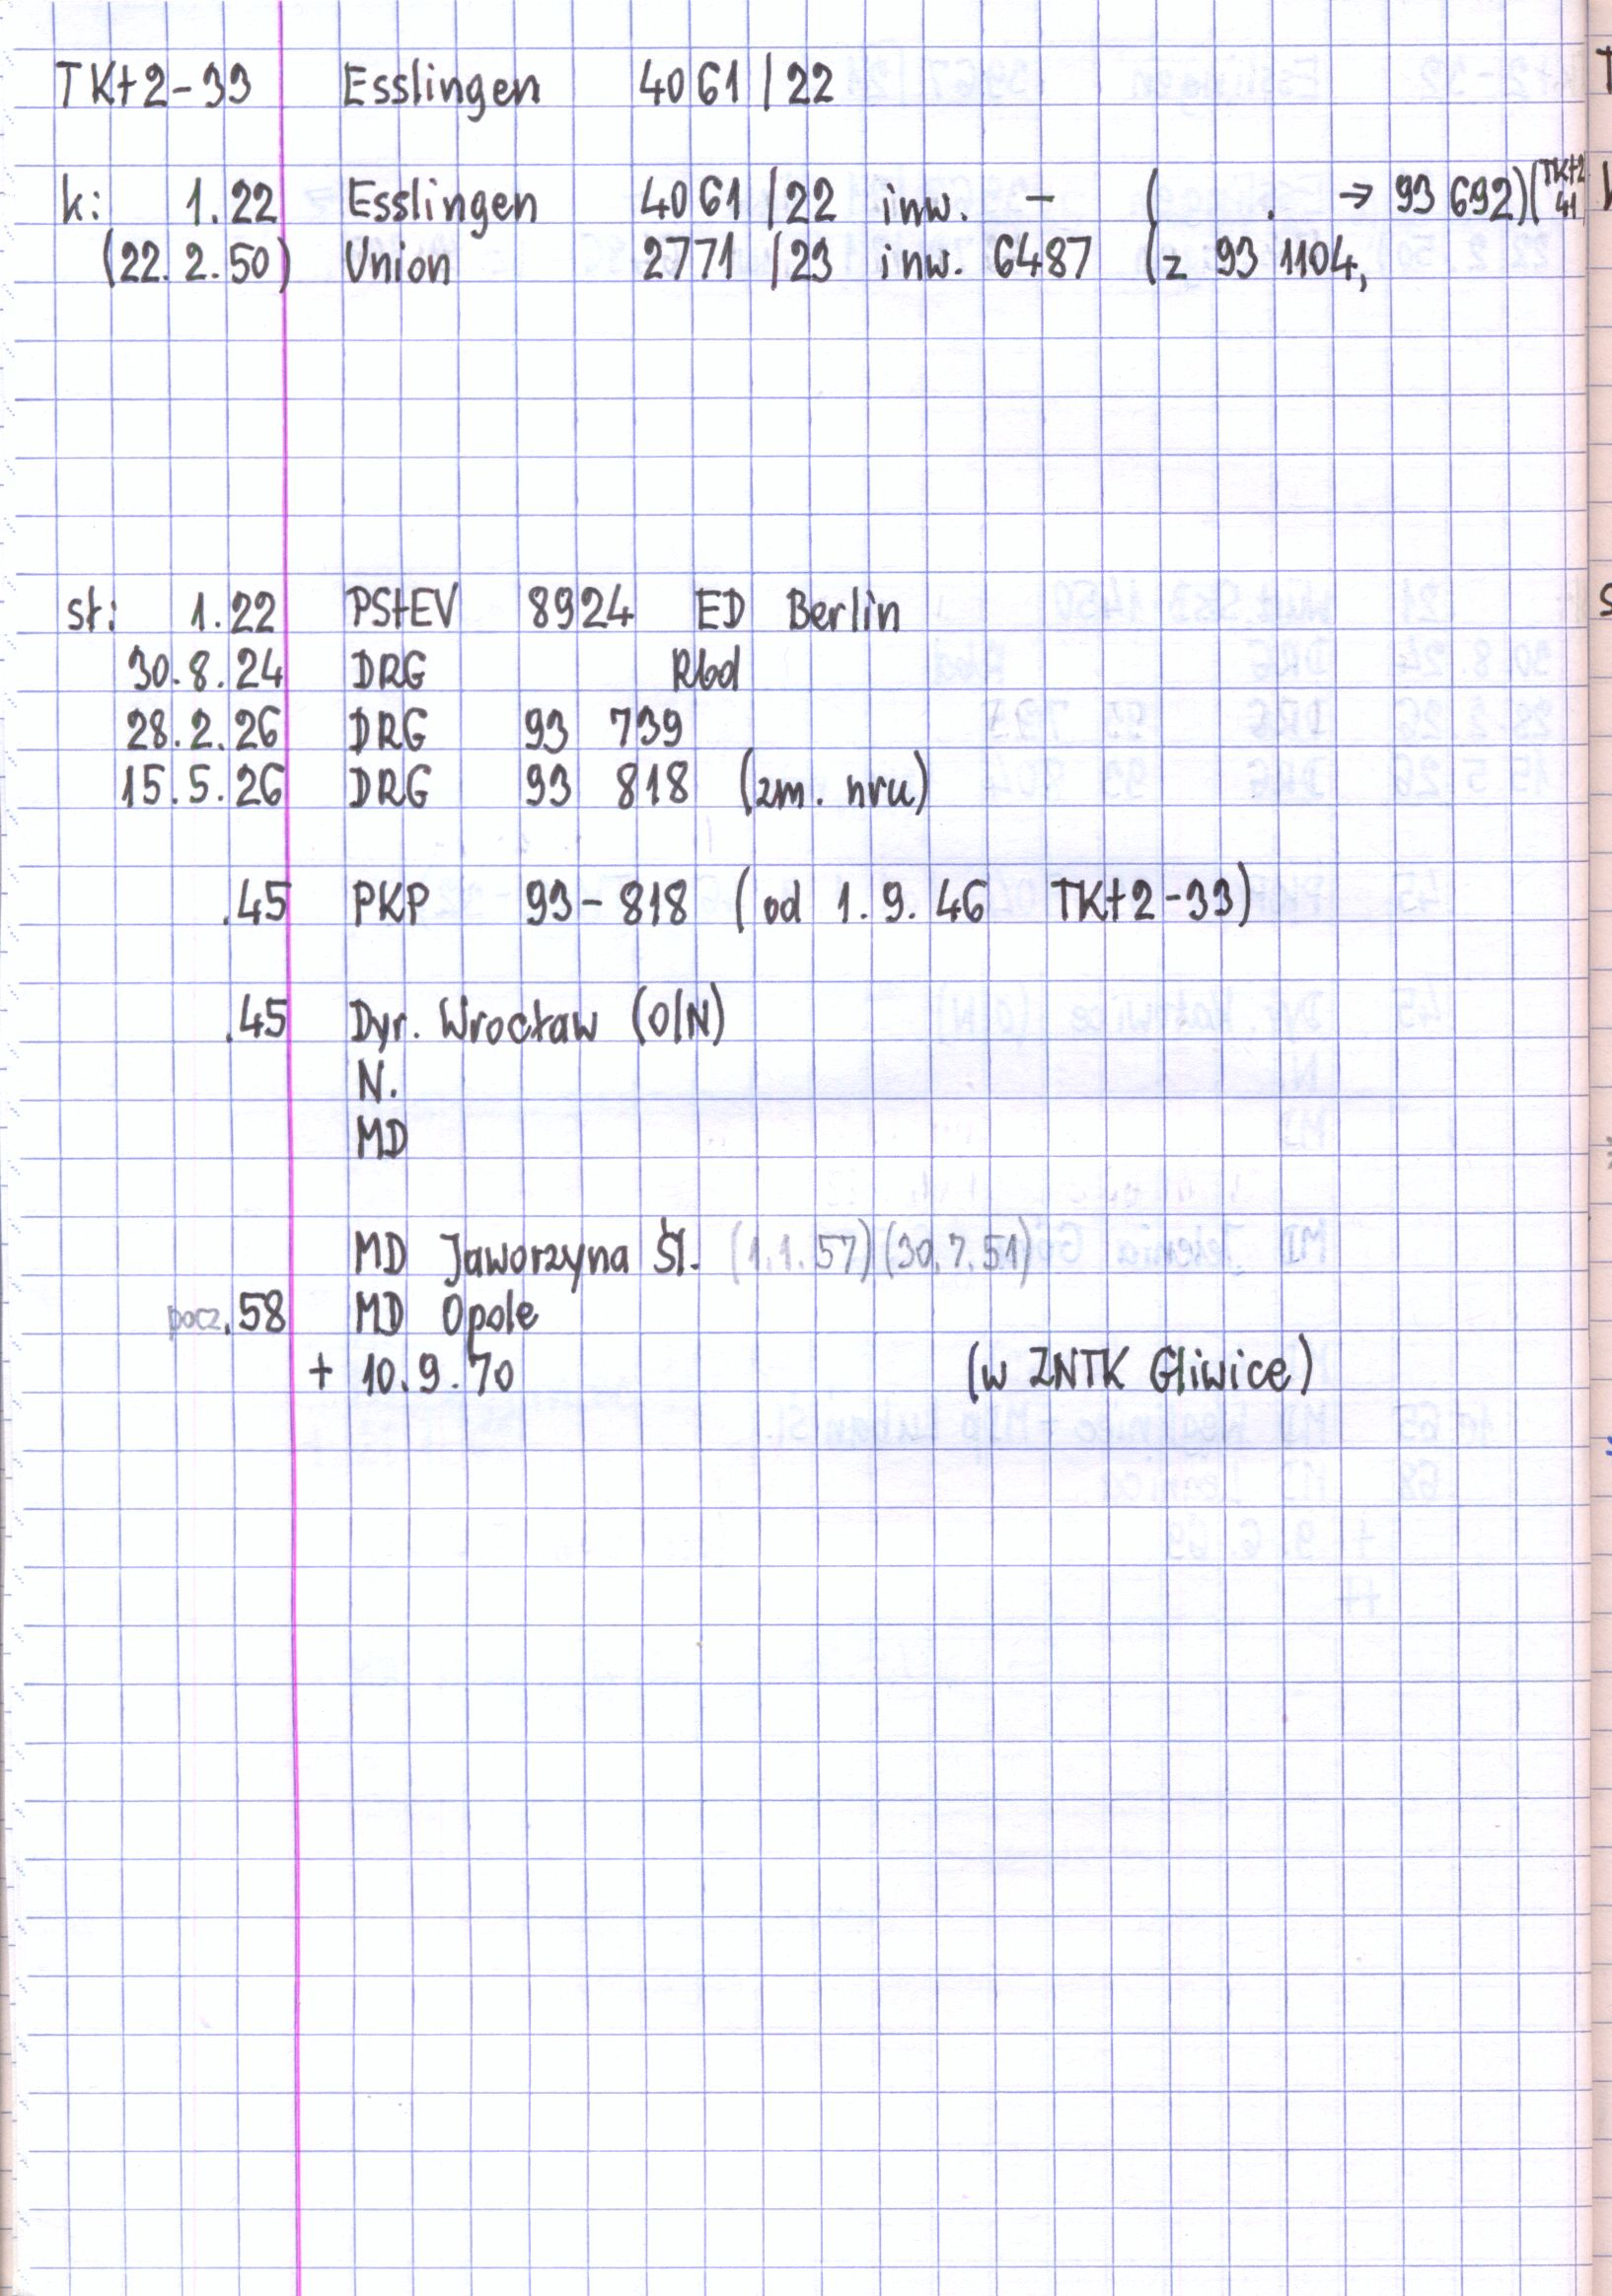 TKt2-33 Esslingen 4061/22
k: 1.22 Esslingen 4061/22 inw. - ( . → 93 692)(TKt2 41
(22.2.50) Union 2771/23 inw. 6487 (z 93 1104,
st: 1.22 PStEV 8924 ED Berlin
30.8.24 DRG Rbd
28.2.26 DRG 93 739
15.5.26 DRG 93 818 (zm. nru)
.45 PKP 93-818 (od 1.9.46 TKt2-33)
.45 Dyr. Wrocław (O/N)
N.
MD
MD Jaworzyna Śl. (1.1.57)(30.7.51)
pocz.58 MD Opole
+ 10.9.70 (w ZNTK Gliwice)